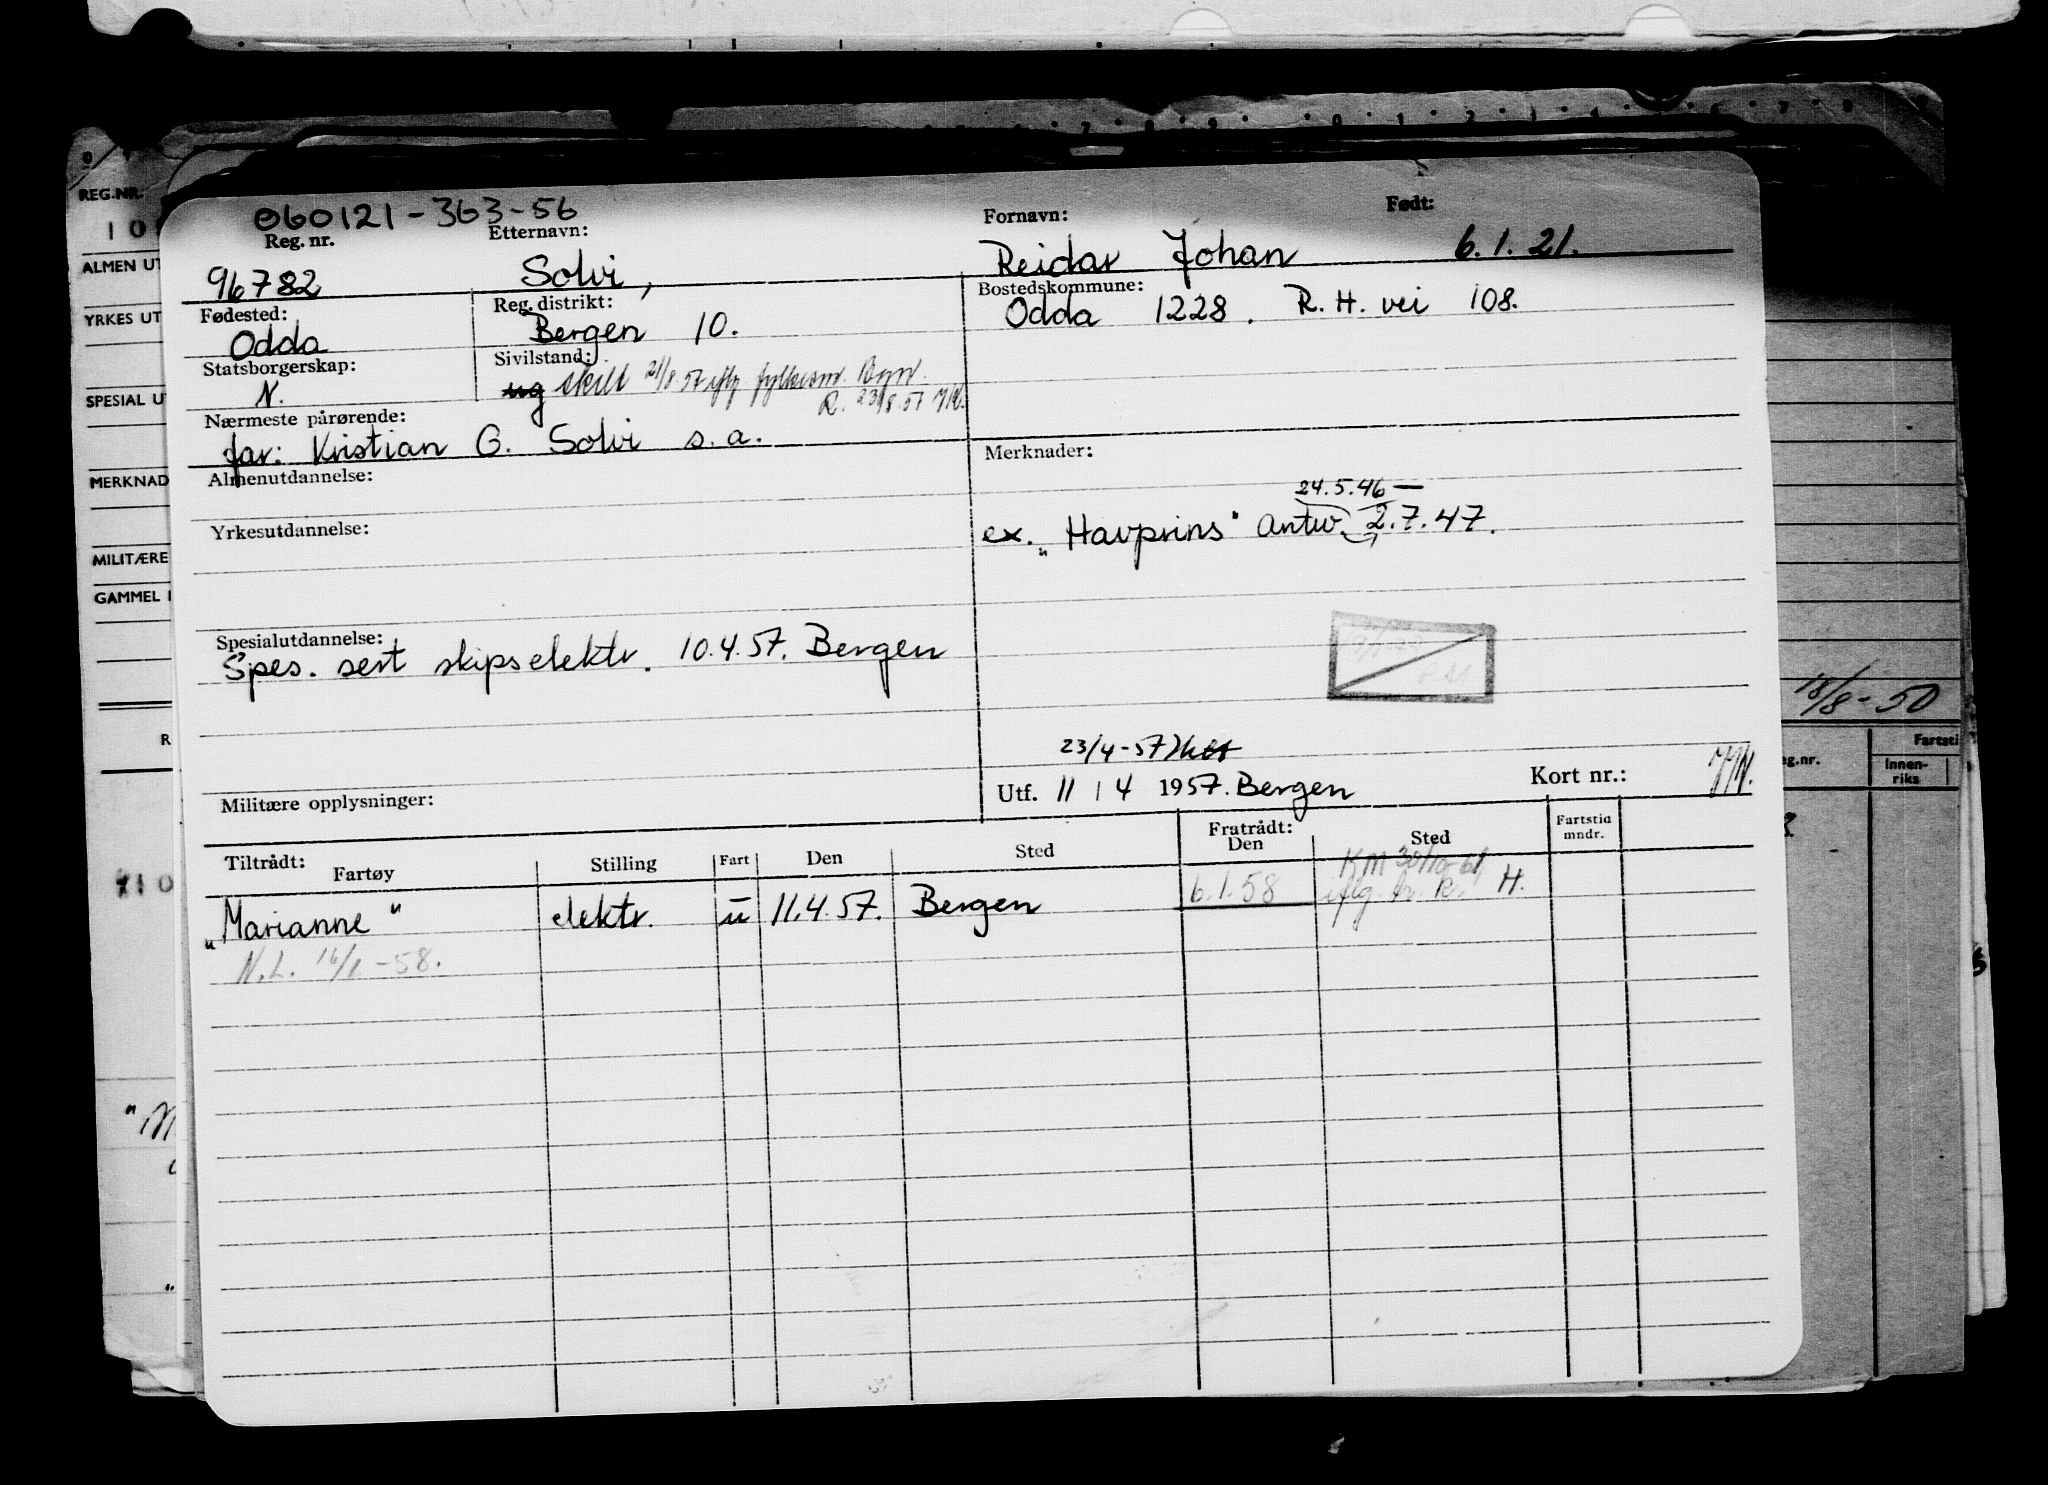 REG.NR.
10
ALMEN UT
YRKES UT
SPESIAL UT
MERKNAD
MILITÆRE
GAMMEL
060121-363-56
Reg. nr. Etternavn: Fornavn: Født:
96782 Solvi, Reidar Johan 6.1.21.
Fødested: Reg. distrikt: Bostedskommune:
Odda Bergen 10. Odda 1228. R. H. vei 108.
Statsborgerskap: Sivilstand:
N. ug skilt 21/8.57 iflg fylkesm.
R. 23/8.57
Nærmeste pårørende:
far: Kristian G. Solvi s.a.
Almenutdannelse: Merknader:
24.5.46 —
Yrkesutdannelse: ex. „Havprins" Antw. 2.7.47.
Spesialutdannelse:
Spes. sert skipselektr. 10.4.57. Bergen
23/4-57
Militære opplysninger: Utf. 11 / 4 1957. Bergen Kort nr.:
Tiltrådt: Fratrådt: Fartstid
Fartøy Stilling Fart Den Sted Den Sted mndr.
KM 30/10-61
„Marianne" elektr. u 11.4.57. Bergen 6.1.58 iflg. br. R. H.
N.L. 16/1-58.
18/8-50
Fartsti
eg.nr. Innen-
riks